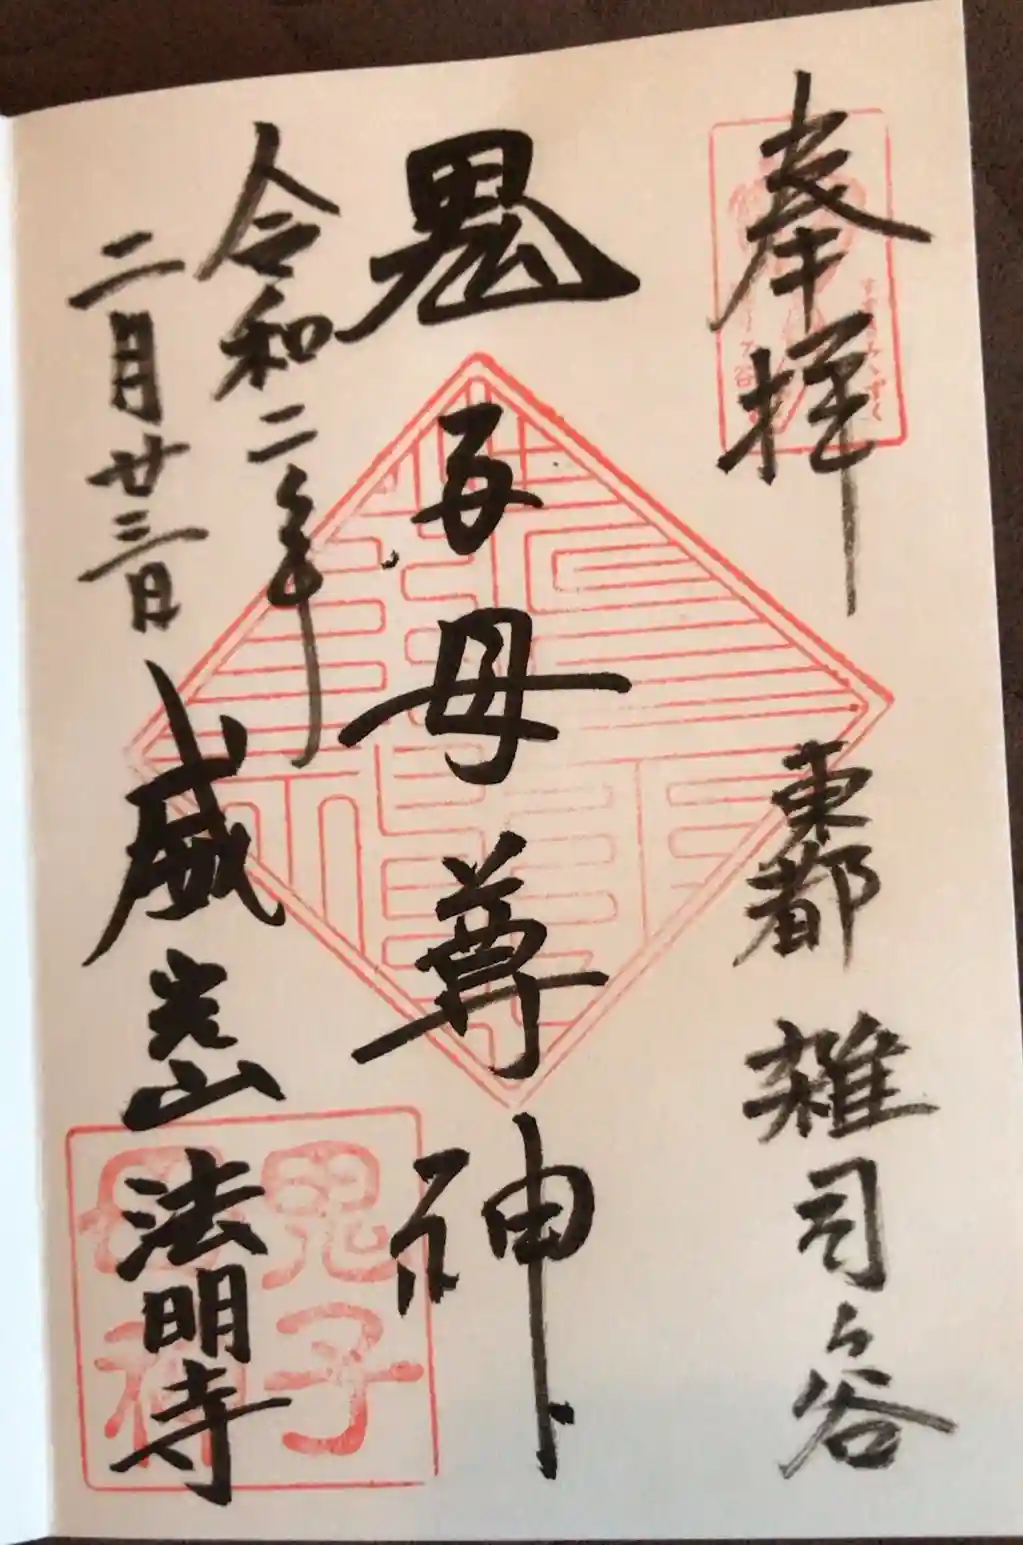 奉拝
東都 雑司ヶ谷
鬼子母尊神
令和二年
二月廿三日
威光山 法明寺
鬼子
母神